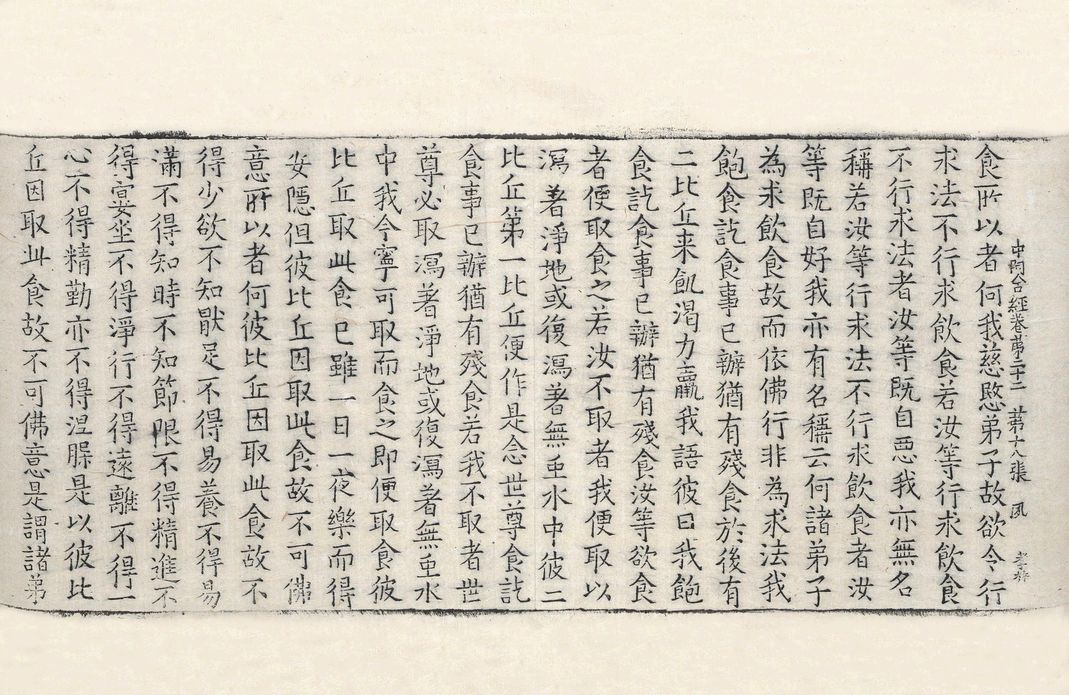 中阿含經卷第二十二 第十八張 風
食所以者何我慈愍弟子故欲令行
求法不行求飲食若汝等行求飲食
不行求法者汝等既自惡我亦無名
稱若汝等行求法不行求飲食者汝
等既自好我亦有名稱云何諸弟子
為求飲食故而依佛行非為求法我
飽食訖食事已辦猶有殘食於後有
二比丘来飢渴力羸我語彼曰我飽
食訖食事已辦猶有殘食汝等欲食
者便取食之若汝不取者我便取以
瀉著淨地或復瀉著無虫水中彼二
比丘第一比丘便作是念世尊食訖
食事已辦猶有殘食若我不取者世
尊必取瀉著淨地或復瀉著無虫水
中我今寧可取而食之即便取食彼
比丘取此食已雖一日一夜樂而得
安隱但彼比丘因取此食故不可佛
意所以者何彼比丘因取此食故不
得少欲不知猒足不得易養不得易
滿不得知時不知節限不得精進不
得宴坐不得淨行不得遠離不得一
心不得精勤亦不得涅槃是以彼比
丘因取此食故不可佛意是謂諸弟